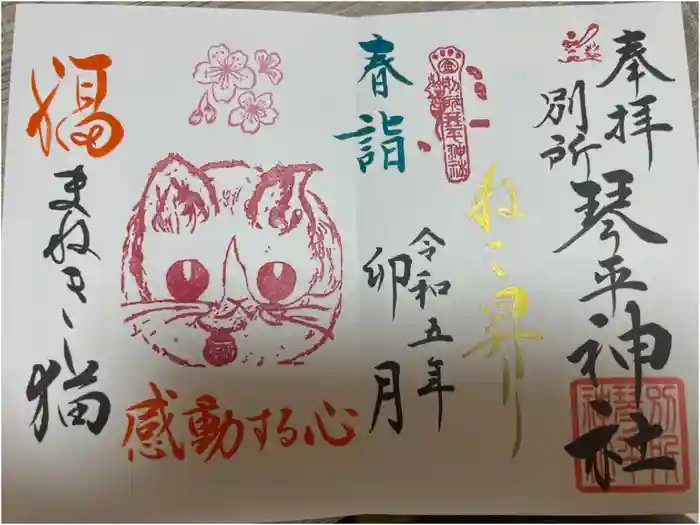 奉拝
別所
琴平神社
別所琴平神社
ねこ昇り
令和五年
卯月
春詣
感動する心
福
まねき猫